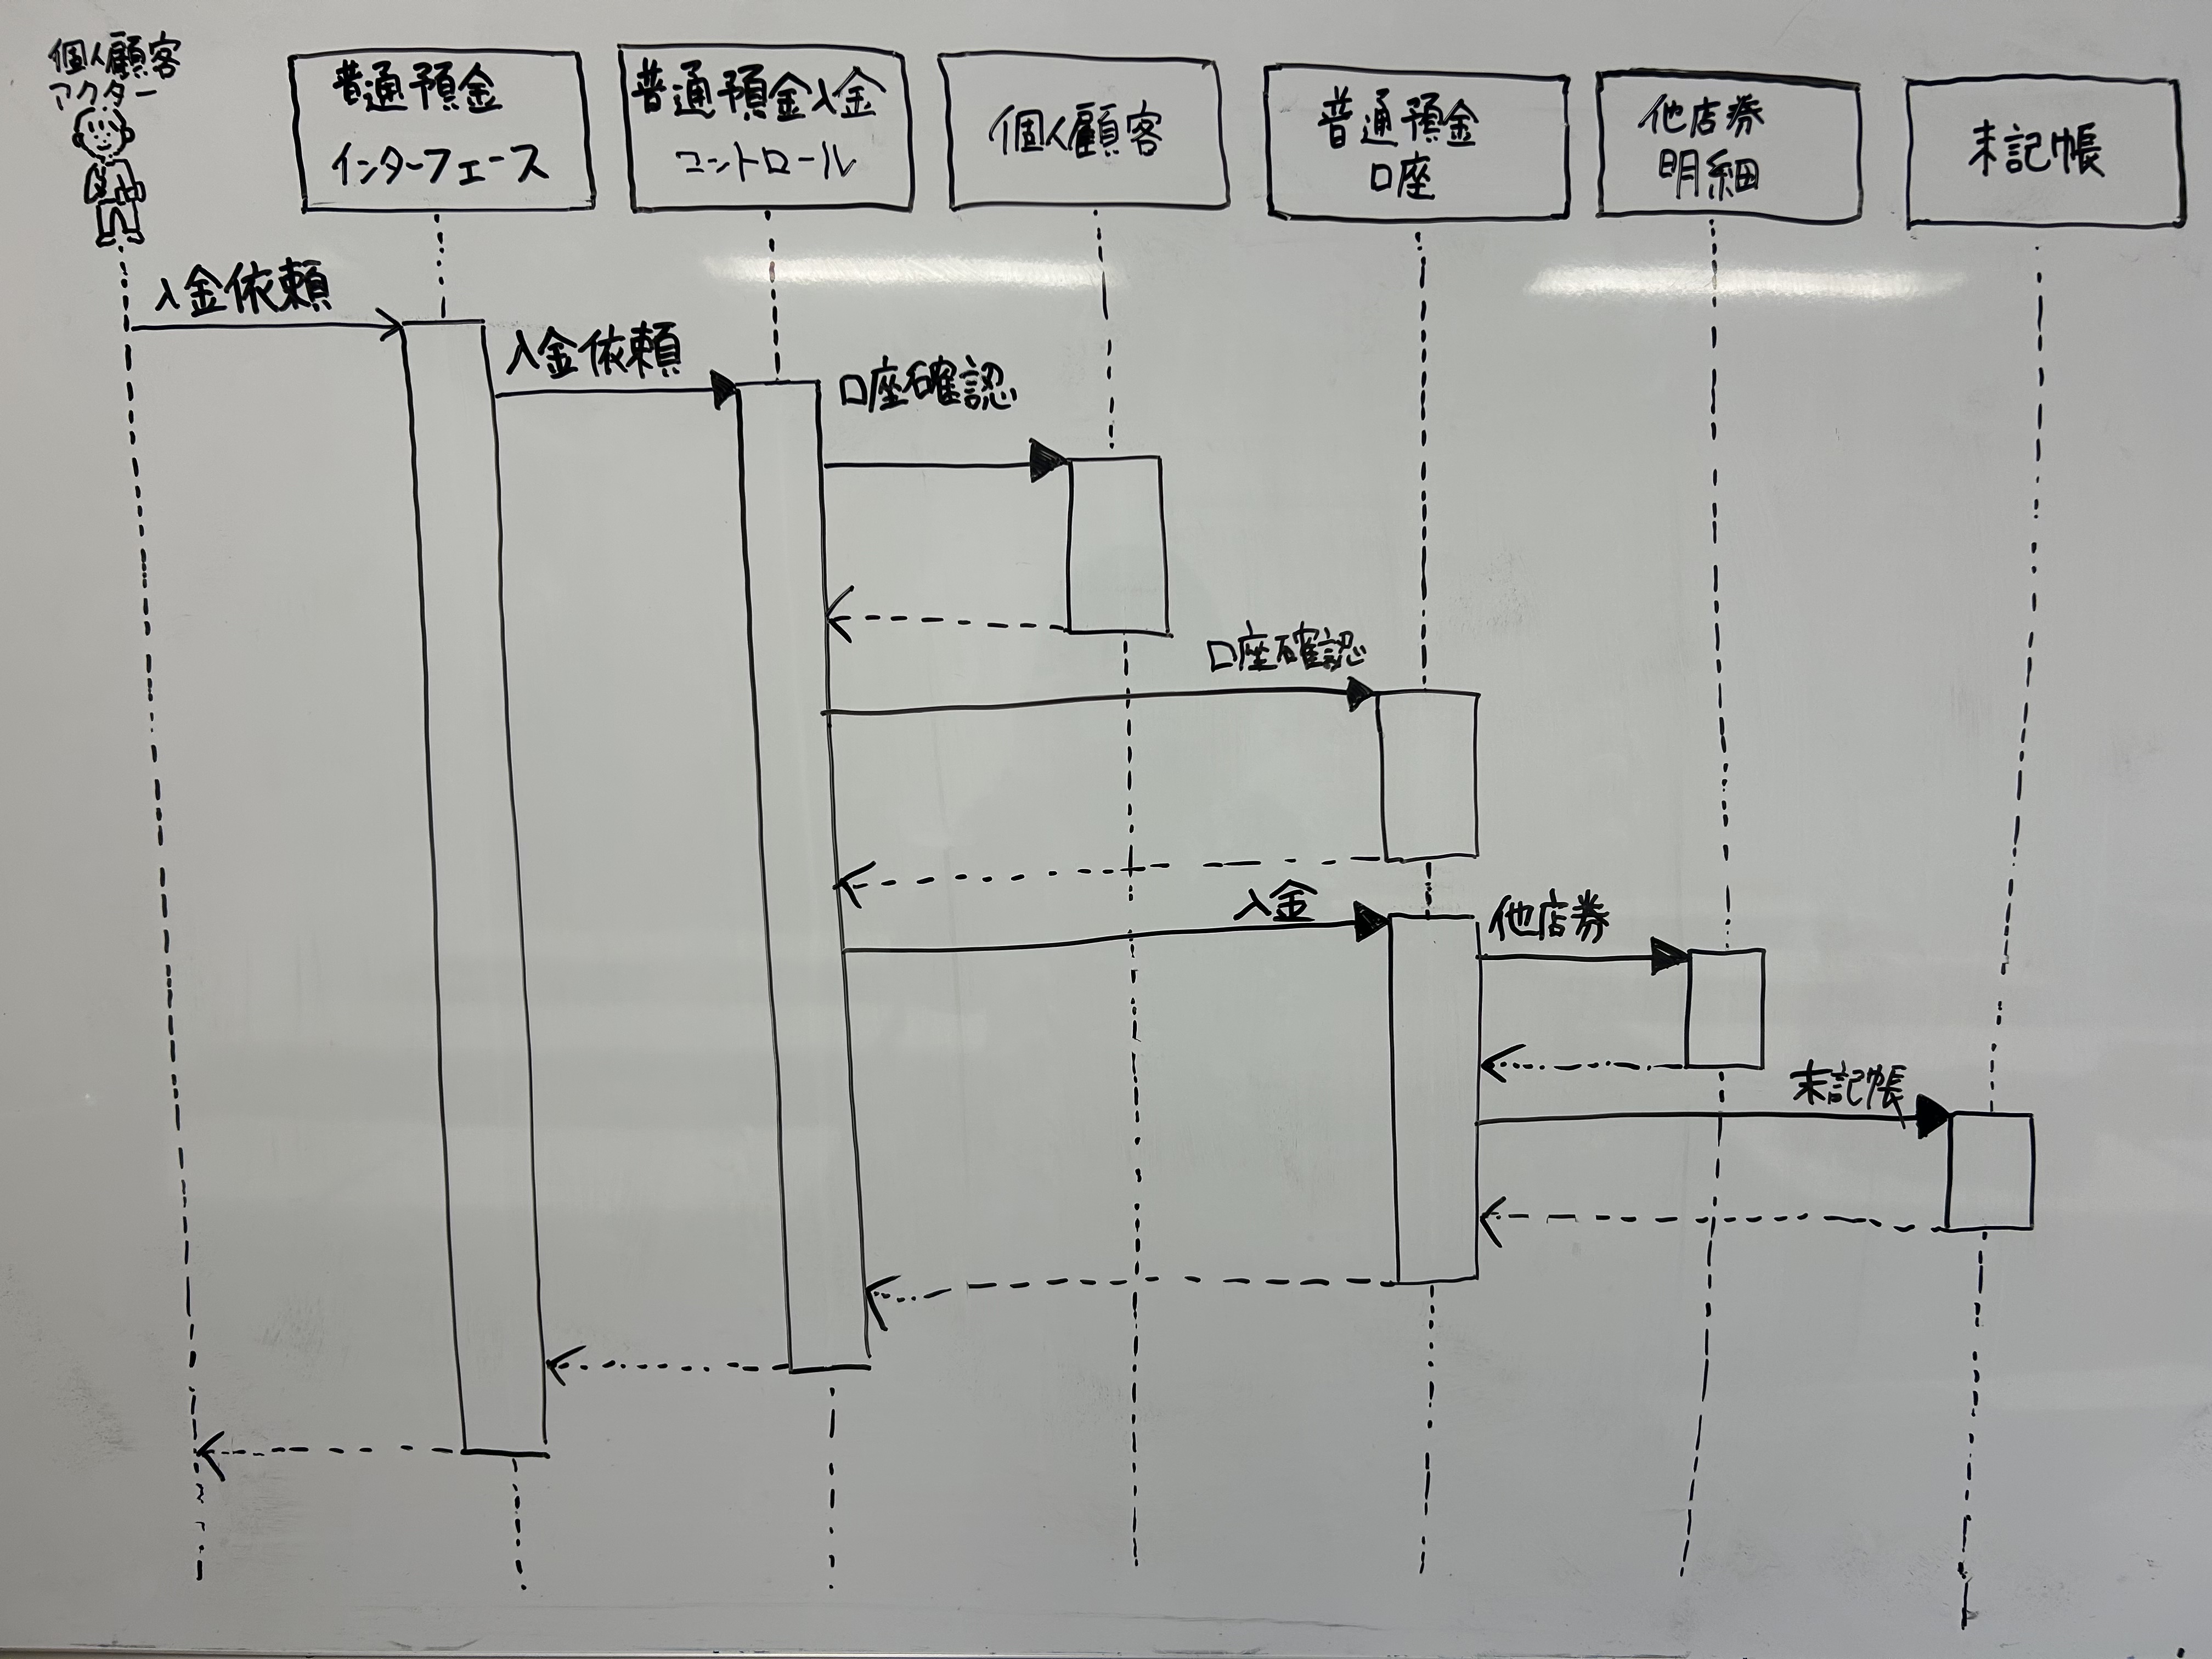 個人顧客
アクター
普通預金
インターフェース
普通預金入金
コントロール
個人顧客
普通預金
口座
他店券
明細
未記帳
入金依頼
入金依頼
口座確認
口座確認
入金
他店券
未記帳